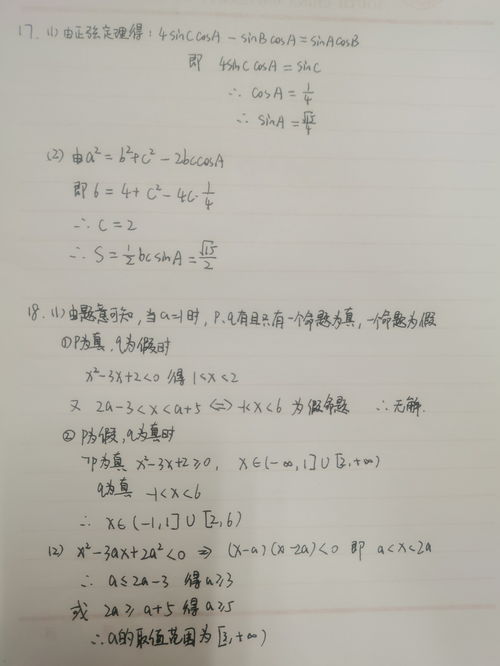 17. (1) 由正弦定理得: 4sinCcosA - sinBcosA = sinAcosB
即 4sinCcosA = sinC
∴ cosA = 1/4
∴ sinA = √15/4
(2) 由a² = b²+c² - 2bccosA
即 6 = 4 + c² - 4c·1/4
∴ c = 2
∴ S = 1/2 bcsinA = √15/2
18. (1) 由题意可知, 当a=1时, P、q有且只有一个命题为真, 一个命题为假
① P为真, q为假时
x²-3x+2<0 得 1<x<2
又 2a-3<x<a+5 ⟺ -1<x<6 为假命题 ∴无解.
② P为假, q为真时
¬P为真 x²-3x+2≥0, x∈(-∞,1]∪[2,+∞)
q为真 -1<x<6
∴ x∈(-1,1]∪[2,6)
(2) x²-3ax+2a²<0 ⇒ (x-a)(x-2a)<0 即 a<x<2a
∴ a≤2a-3 得a≥3
或 2a≥a+5 得a≥5
∴a的取值范围为[3,+∞)